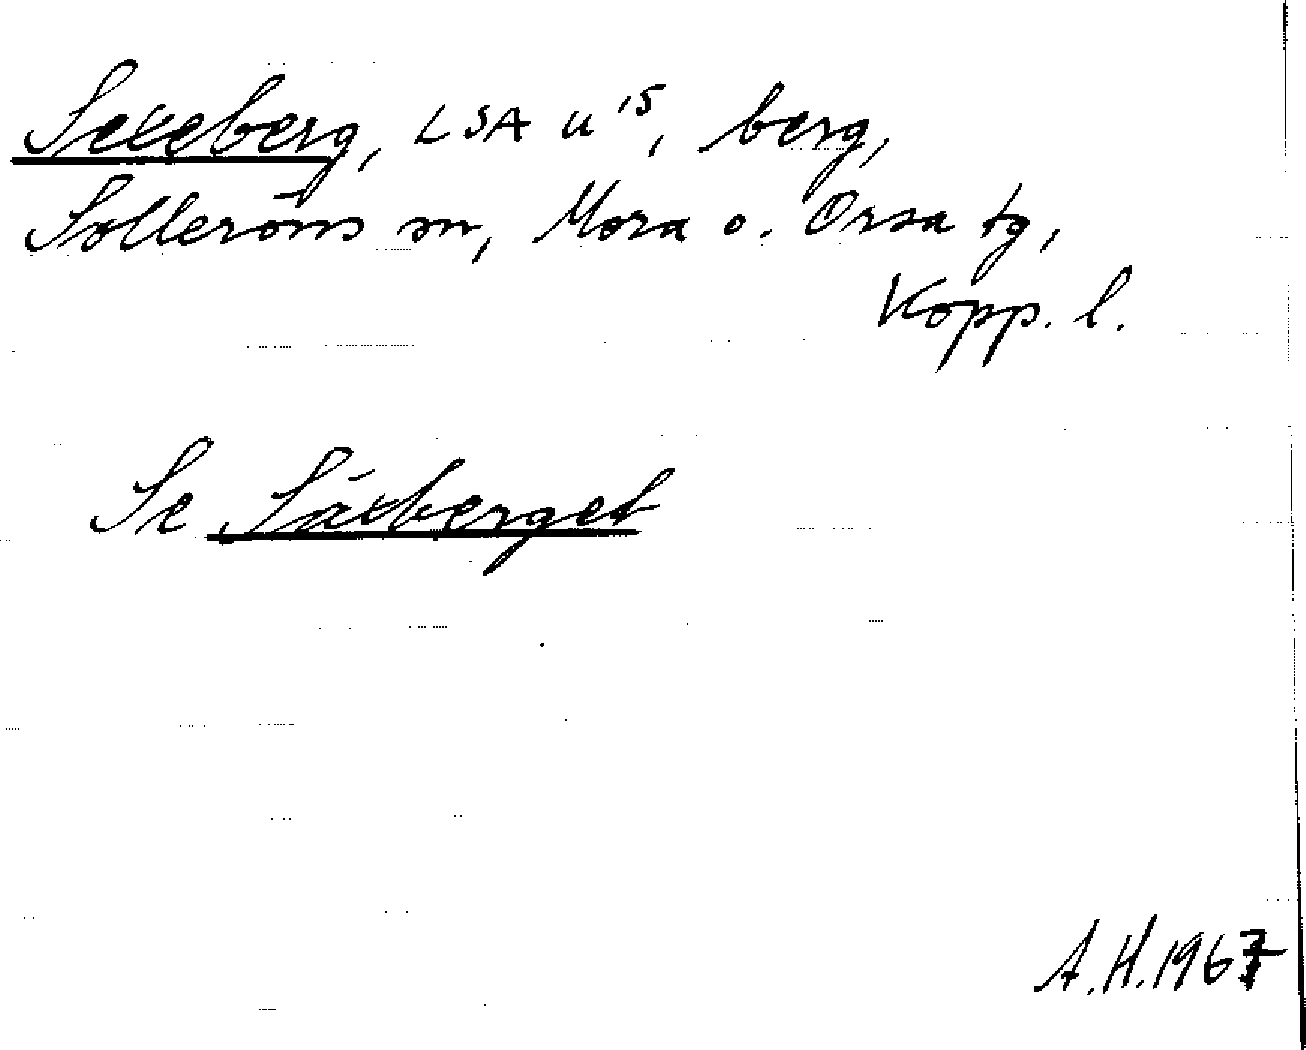 Sexeberg, LSA U 15, berg,
Solleröns sn, Mora o. Orsa tg,
Kopp. l.
Se Säxberget
A.H. 1967